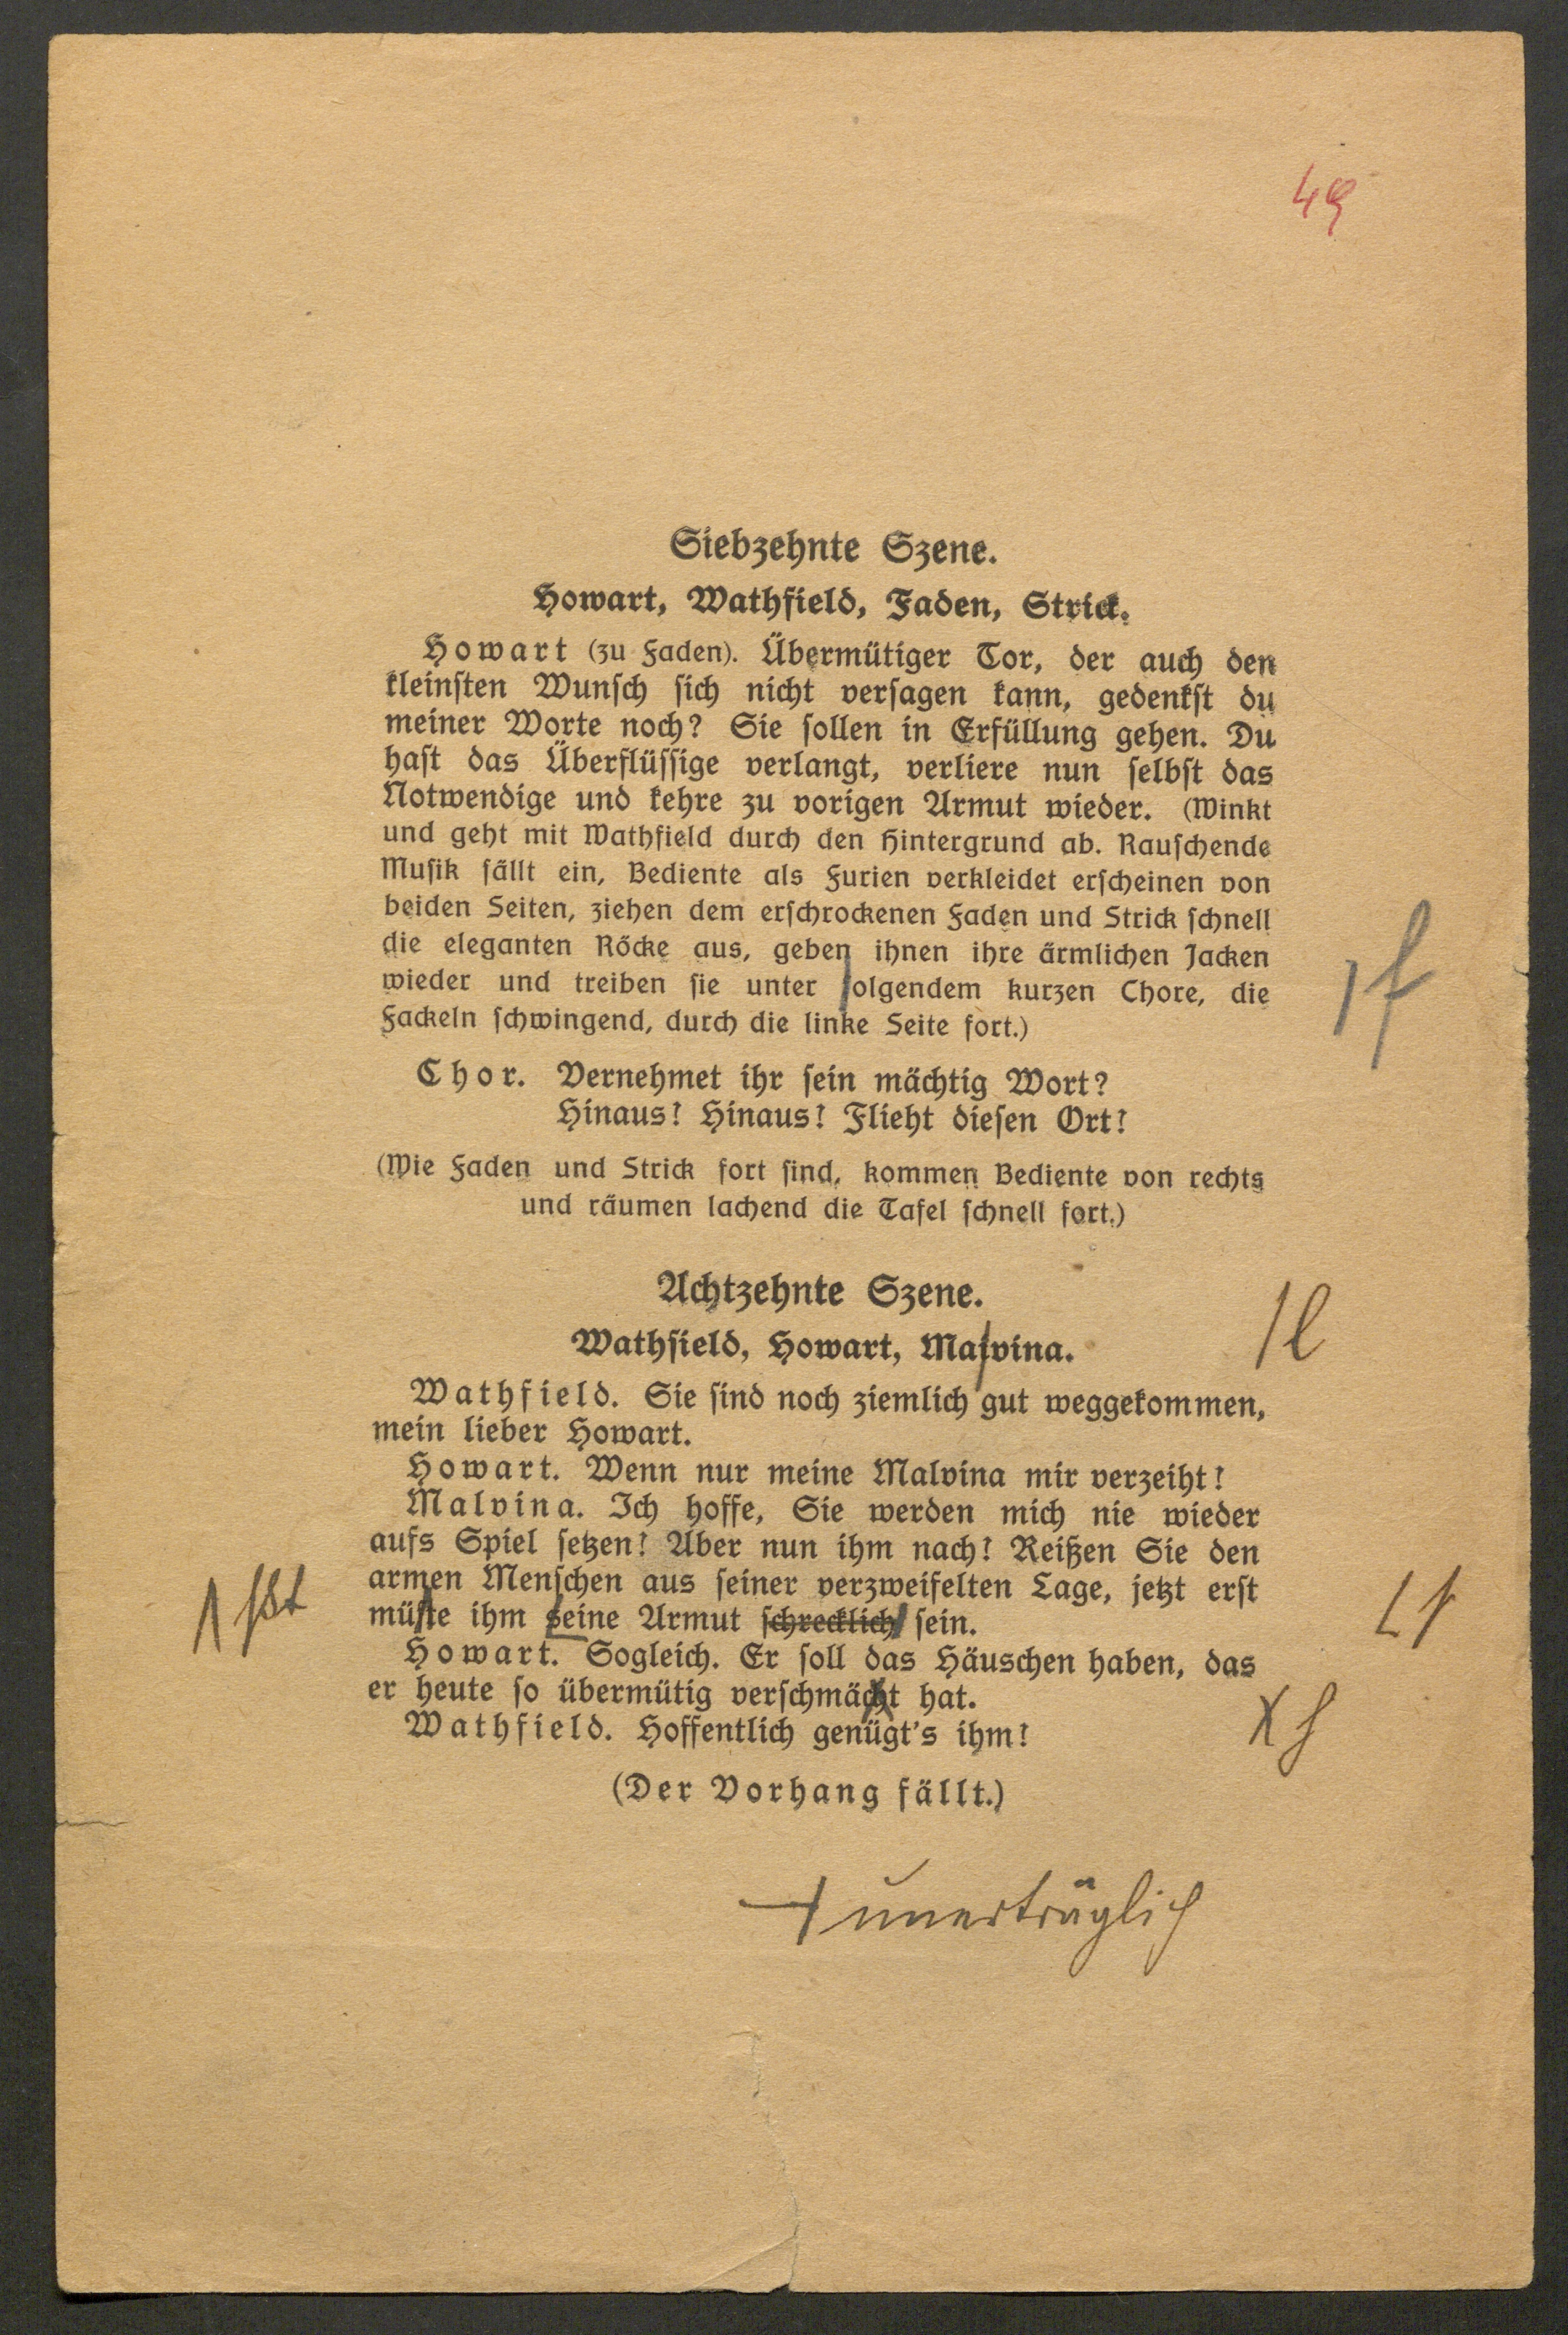 49
Siebzehnte Szene.
Howart, Wathfield, Faden, Strick.
Howart (zu Faden). Übermütiger Tor, der auch den
kleinsten Wunsch sich nicht versagen kann, gedenkst du
meiner Worte noch? Sie sollen in Erfüllung gehen. Du
hast das Überflüssige verlangt, verliere nun selbst das
Notwendige und kehre zu vorigen Armut wieder. (Winkt
und geht mit Wathfield durch den Hintergrund ab. Rauschende
Musik fällt ein, Bediente als Furien verkleidet erscheinen von
beiden Seiten, ziehen dem erschrockenen Faden und Strick schnell
die eleganten Röcke aus, geben ihnen ihre ärmlichen Jacken
wieder und treiben sie unter folgendem kurzen Chore, die
Fackeln schwingend, durch die linke Seite fort.)
f
Chor. Vernehmet ihr sein mächtig Wort?
Hinaus! Hinaus! Flieht diesen Ort!
(Wie Faden und Strick fort sind, kommen Bediente von rechts
und räumen lachend die Tafel schnell fort.)
Achtzehnte Szene.
Wathfield, Howart, Malvina.
l
Wathfield. Sie sind noch ziemlich gut weggekommen,
mein lieber Howart.
Howart. Wenn nur meine Malvina mir verzeiht!
Malvina. Ich hoffe, Sie werden mich nie wieder
aufs Spiel setzen! Aber nun ihm nach! Reißen Sie den
armen Menschen aus seiner verzweifelten Lage, jetzt erst
müste ihm seine Armut schrecklich sein.
ßt
Howart. Sogleich. Er soll das Häuschen haben, das
er heute so übermütig verschmächt hat.
h
Wathfield. Hoffentlich genügt's ihm!
(Der Vorhang fällt.)
unerträglich